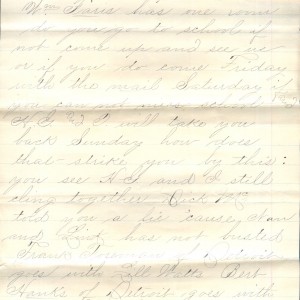 Wm Faris has one room
do you go to school if
not come up and see us
or if you do come Friday
with the mail Saturday if
you can not miss school
will take you
back Sunday how does
that strike you by this:
you see and I still
cling together
told you a lie 'cause,
and has not busted
Frank of Detroit
goes with Bert
Hanks of Detroit goes with